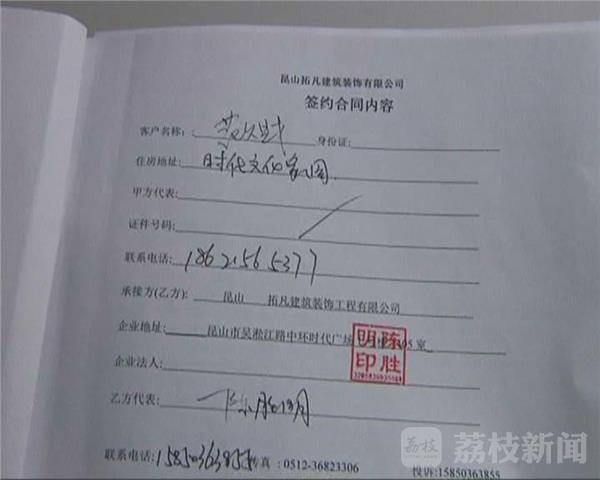 昆山拓凡建筑装饰有限公司
签约合同内容
客户名称： 身份证：
住房地址： 时代文化家园
甲方代表：
证件号码：
联系电话： 18621565377
承接方(乙方)： 昆山 拓凡建筑装饰工程有限公司
企业地址： 昆山市吴淞江路中环时代广场 05室
陈胜明印
企业法人：
乙方代表： 陈胜明
联系电话:15850363855 传真：0512-36823306
投诉:15850363855
荔枝 荔枝新闻